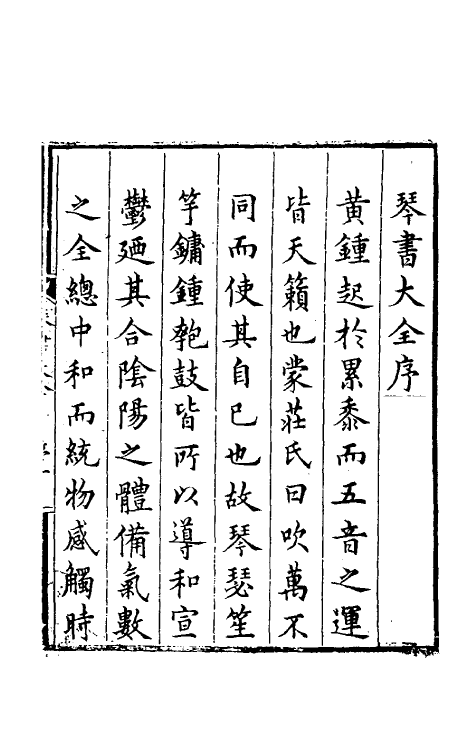 琴書大全序
黄鍾起於累黍而五音之運
皆天籟也蒙莊氏曰吹萬不
同而使其自已也故琴瑟笙
竽鏞鍾匏鼓皆所以導和宣
鬱廼其合陰陽之體備氣數
之全總中和而統物感觸時